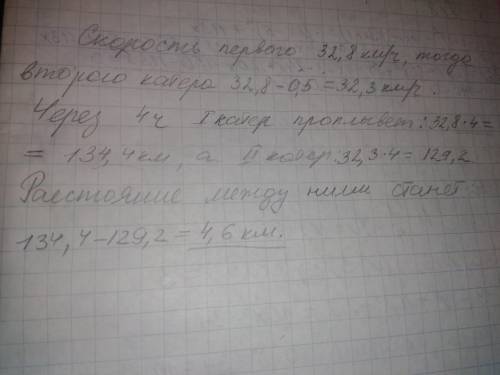 Скорость первого 32,8 км/ч, тогда
второго катера 32,8-0,5=32,3 км/ч.
Через 4ч I катер проплывет: 32,8·4=
= 134,4 км, а II катер 32,3·4=129,2
Расстояние между ними станет
134,4-129,2=4,6 км.